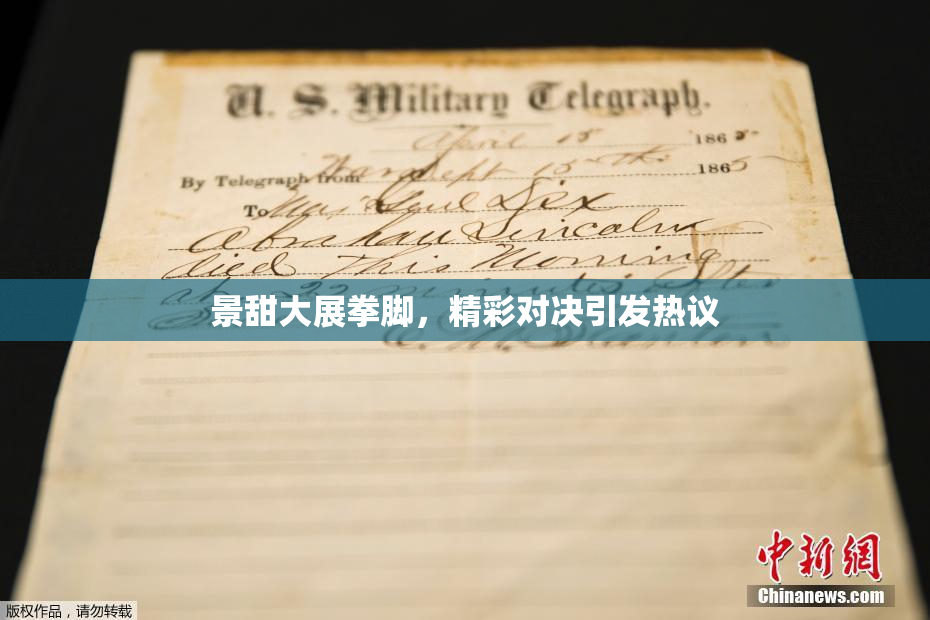 U. S. Military Telegraph.
April 15 1865
By Telegraph from War Dept 15th 1865
To Maj Genl Dix
Abraham Lincoln
died This Morning
at 22 minutes after
景甜大展拳脚，精彩对决引发热议
E. M. Stanton
中新網
Chinanews.com
版权作品，请勿转载